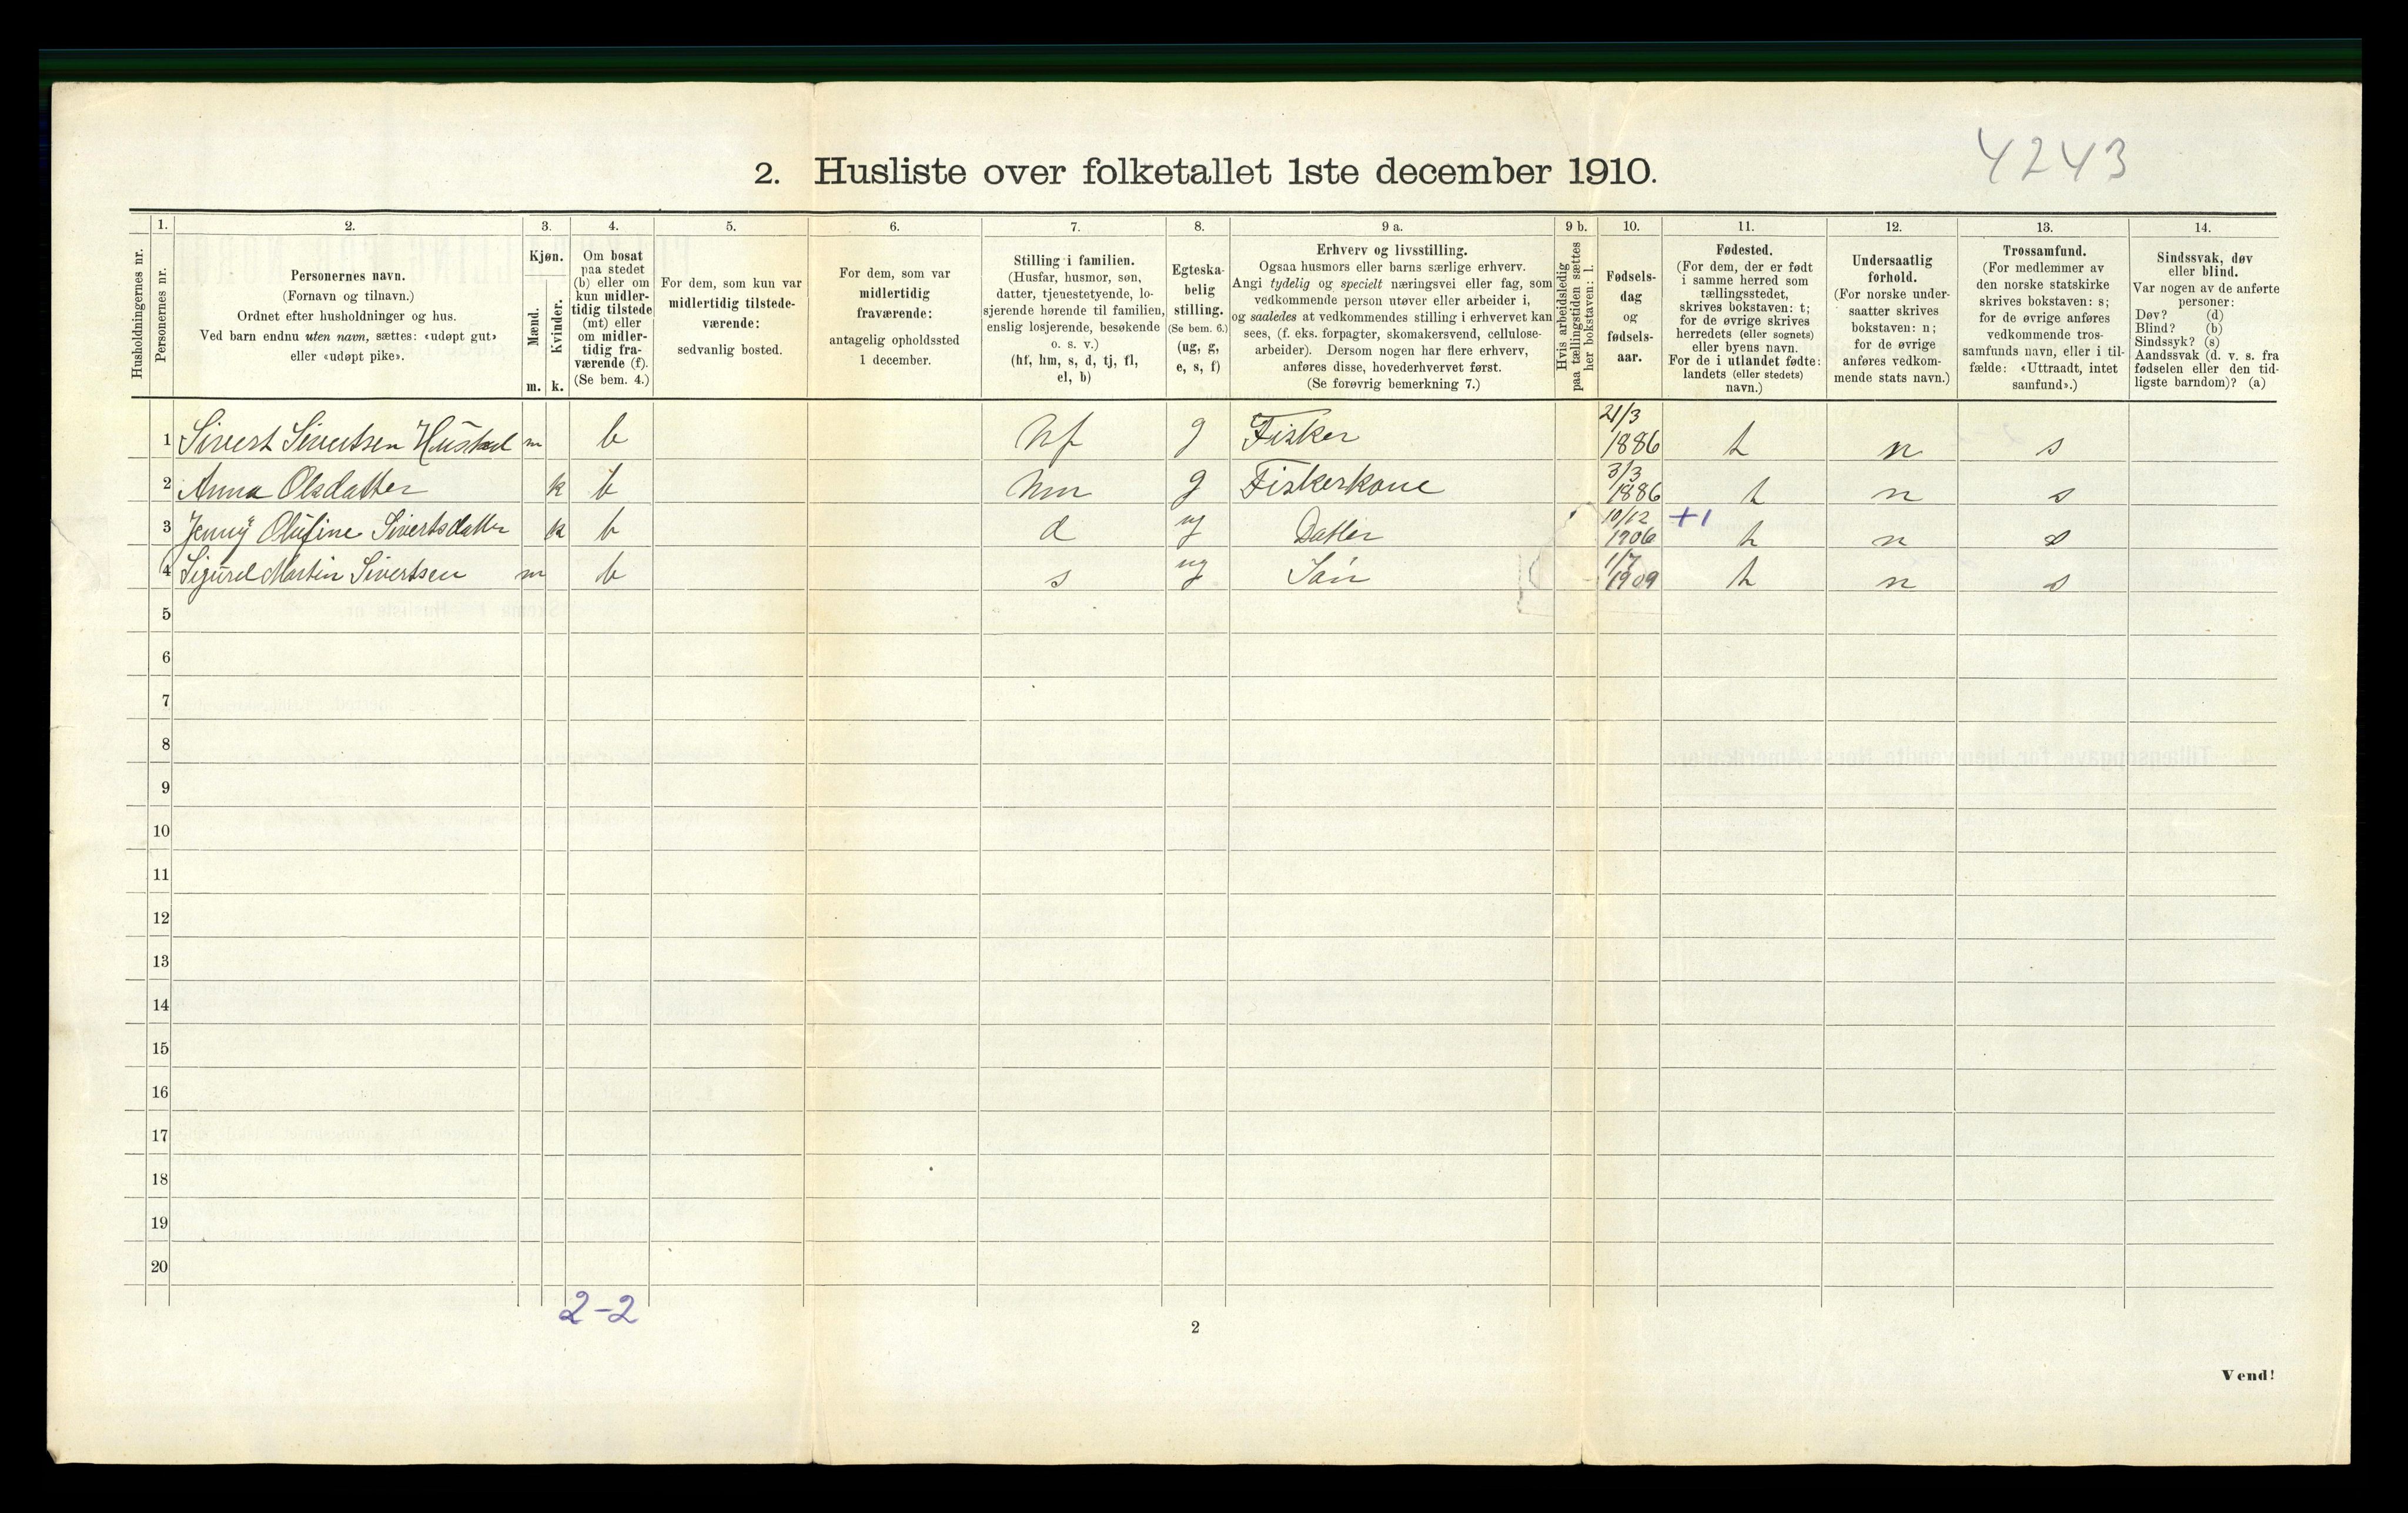 4243
2. Husliste over folketallet 1ste december 1910.
Husholdningernes nr.
1. Personernes nr.
2. Personernes navn.
(Fornavn og tilnavn.)
Ordnet efter husholdninger og hus.
Ved barn endnu uten navn, sættes: «udøpt gut»
eller «udøpt pike».
3. Kjøn.
Mænd. m.
Kvinder. k.
4. Om bosat
paa stedet
(b) eller om
kun midler-
tidig tilstede
(mt) eller
om midler-
tidig fra-
værende (f).
(Se bem. 4.)
5. For dem, som kun var
midlertidig tilstede-
værende:
sedvanlig bosted.
6. For dem, som var
midlertidig
fraværende:
antagelig opholdssted
1 december.
7. Stilling i familien.
(Husfar, husmor, søn,
datter, tjenestetyende, lo-
sjerende hørende til familien,
enslig losjerende, besøkende
o. s. v.)
(hf, hm, s, d, tj, fl,
el, b)
8. Egteska-
belig
stilling.
(Se bem. 6.)
(ug, g,
e, s, f)
9 a. Erhverv og livsstilling.
Ogsaa husmors eller barns særlige erhverv.
Angi tydelig og specielt næringsvei eller fag, som
vedkommende person utøver eller arbeider i,
og saaledes at vedkommendes stilling i erhvervet kan
sees, (f. eks. forpagter, skomakersvend, cellulose-
arbeider). Dersom nogen har flere erhverv,
anføres disse, hovederhvervet først.
(Se forøvrig bemerkning 7.)
9 b. Hvis arbeidsledig
paa tællingstiden sættes
her bokstaven: l.
10. Fødsels-
dag
og
fødsels-
aar.
11. Fødested.
(For dem, der er født
i samme herred som
tællingsstedet,
skrives bokstaven: t;
for de øvrige skrives
herredets (eller sognets)
eller byens navn.
For de i utlandet fødte:
landets (eller stedets)
navn.)
12. Undersaatlig
forhold.
(For norske under-
saatter skrives
bokstaven: n;
for de øvrige
anføres vedkom-
mende stats navn.)
13. Trossamfund.
(For medlemmer av
den norske statskirke
skrives bokstaven: s;
for de øvrige anføres
vedkommende tros-
samfunds navn, eller i til-
fælde: «Uttraadt, intet
samfund».)
14. Sindssvak, døv
eller blind.
Var nogen av de anførte
personer:
Døv? (d)
Blind? (b)
Sindssyk? (s)
Aandssvak (d. v. s. fra
fødselen eller den tid-
ligste barndom)? (a)
1 Sivert Sivertsen Hustad m b hf g Fisker 21/3 1886 t n s
2 Anna Olsdatter k b hm g Fiskerkone 3/3 1886 t n s
3 Jenny Olufine Sivertsdatter k b d ug Datter 10/12 1906 +1 t n s
4 Sigurd Martin Sivertsen m b s ug Sön 1/7 1909 t n s
5
6
7
8
9
10
11
12
13
14
15
16
17
18
19
20
2-2
2
Vend!